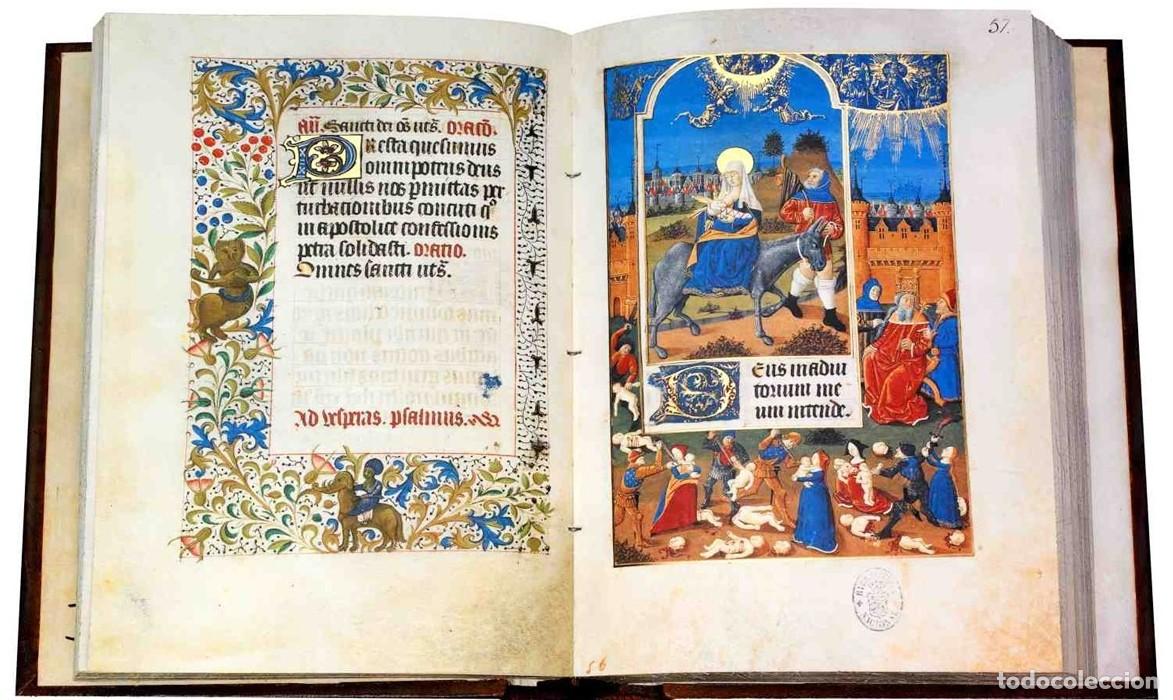 57.
Añ. Sancti dei oẽs. ut̃s. Oracõ.
Presta quesumus
omnipotens deus
ut nullis nos pmittas per
turbationibus concuti q̊s
in apostolice confessionis
petra solidasti. Oratio.
Omnes sancti ut̃s.
Ad vesperas. psalmus.
Deus in adiu
torium me
um intende.
56
todocoleccion